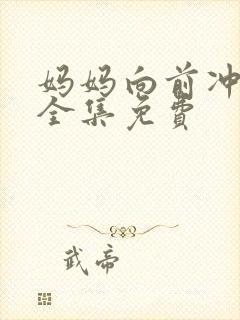 妈妈向前冲
全集免费
武帝